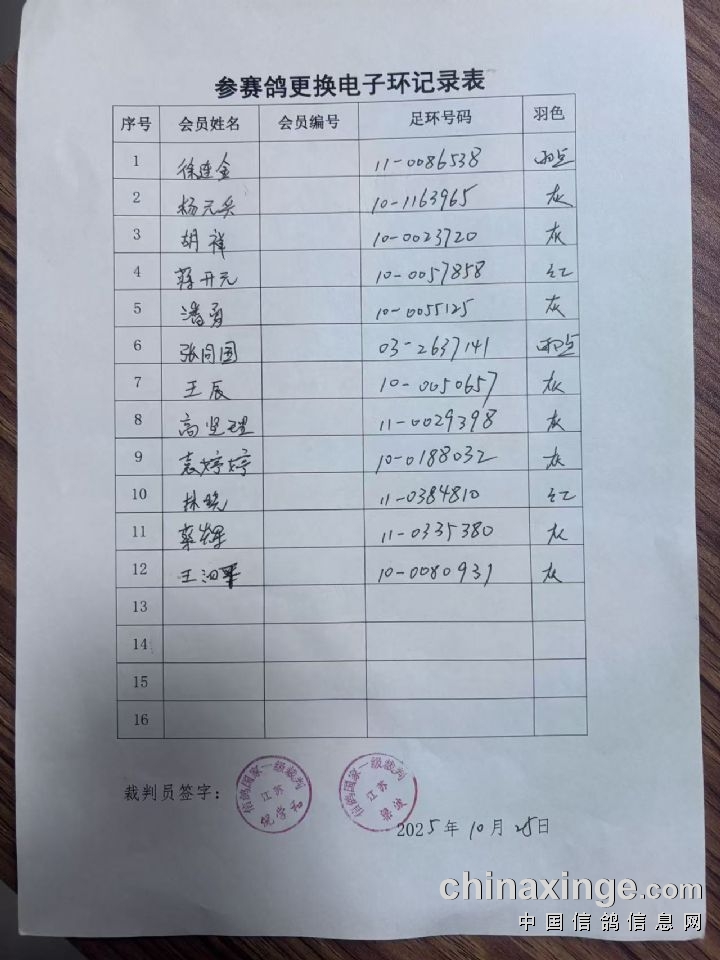 参赛鸽更换电子环记录表
序号 会员姓名 会员编号 足环号码 羽色
1 徐连金 11-0086538 雨点
2 杨元兵 10-1163965 灰
3 胡祥 10-0023720 灰
4 蒋开元 10-0057858 红
5 潘勇 10-0055125 灰
6 张同国 03-2637141 雨点
7 王辰 10-0050657 灰
8 高坚 11-0029398 灰
9 袁婷婷 10-0188032 灰
10 林晓 11-0384810 红
11 蔡辉 11-0335380 灰
12 王 10-0080931 灰
13
14
15
16
裁判员签字：
信鸽国家一级裁判
江苏
倪学和
信鸽国家一级裁判
江苏
梁波
2025年10月25日
chinaxinge.com
中国信鸽信息网